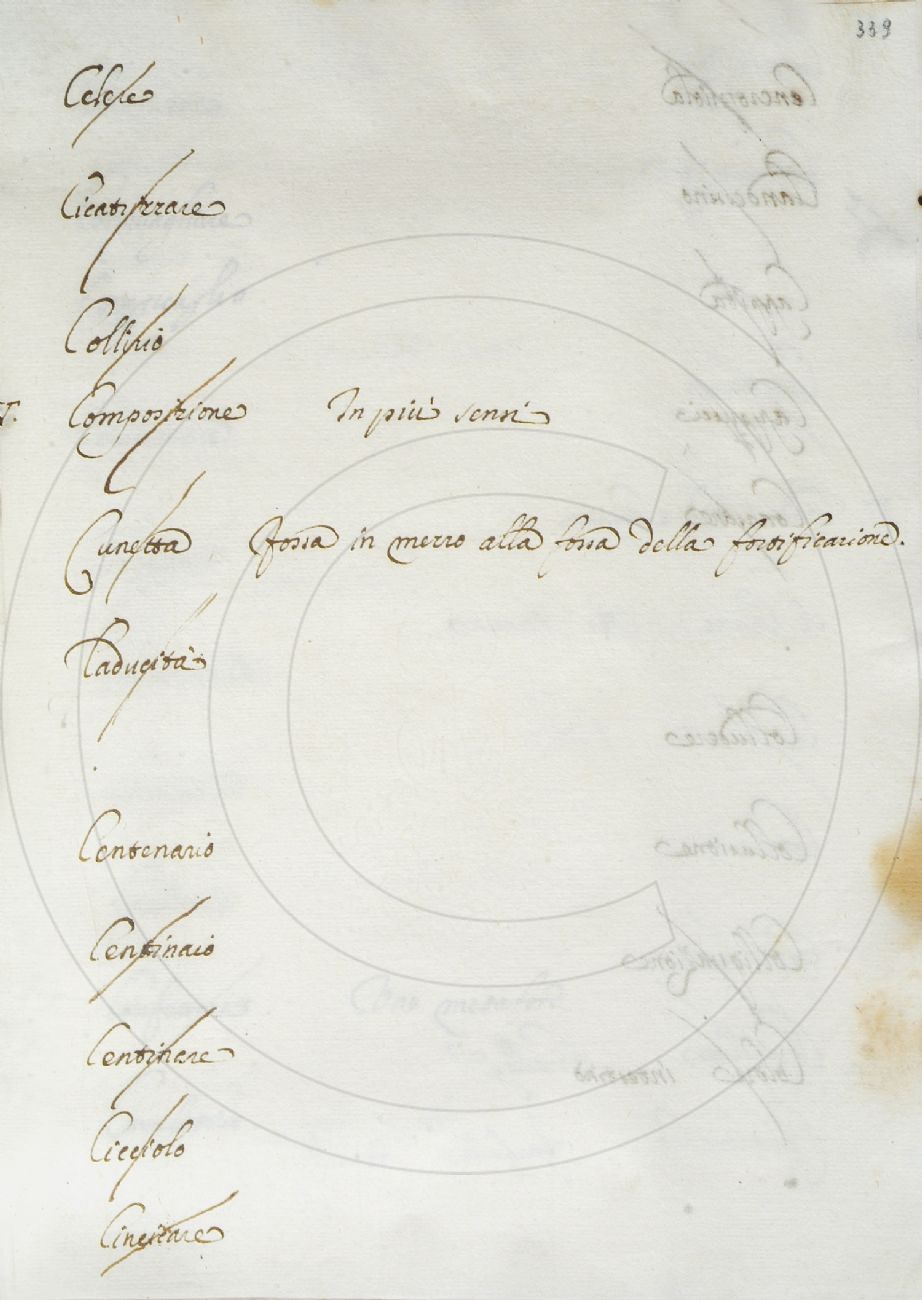 339
Cicatrizzare
Collirio
Composizione In più sensi
Cunetta Fossa in mezzo alla fossa della fortificazione.
Caducità
Centenario
Centinaio
Centinare
Cicciolo